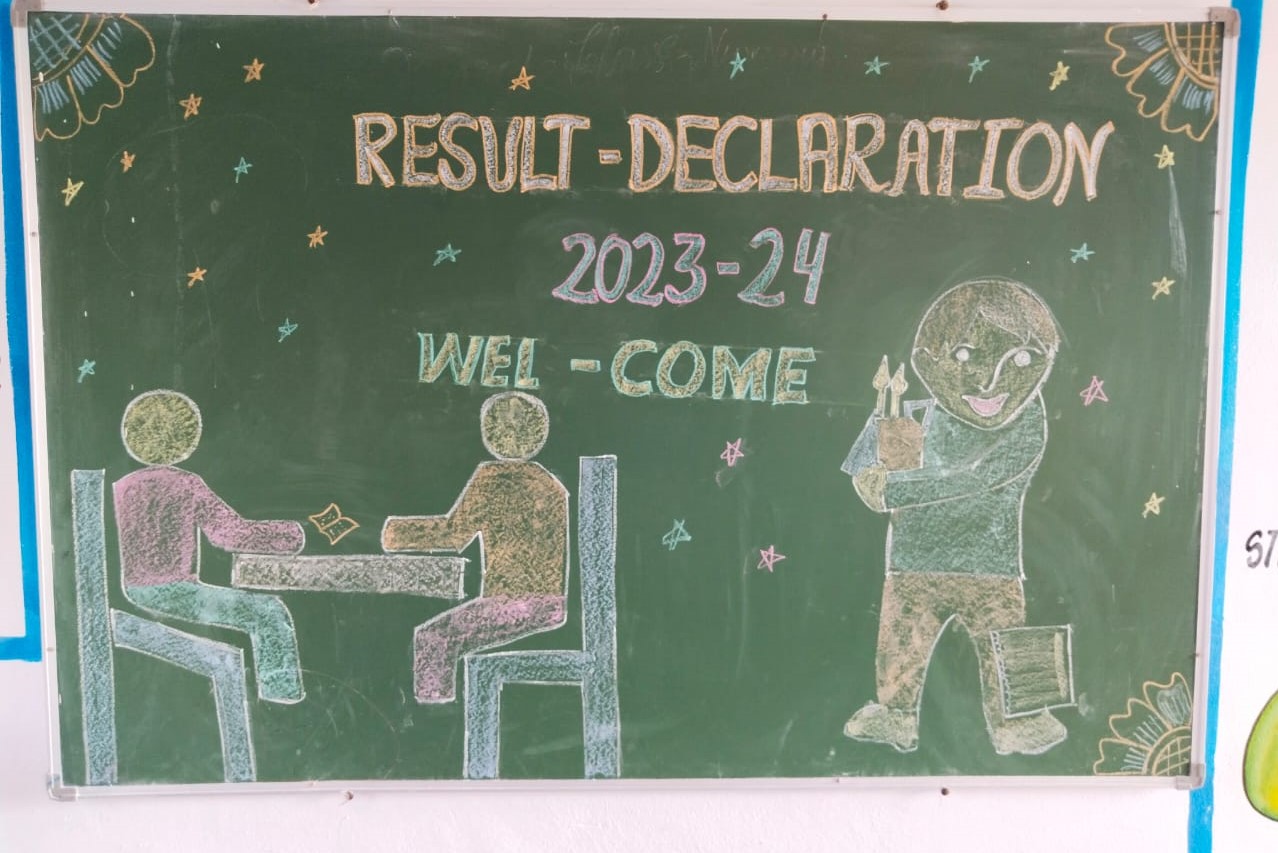 RESULT-DECLARATION
2023-24
WEL-COME